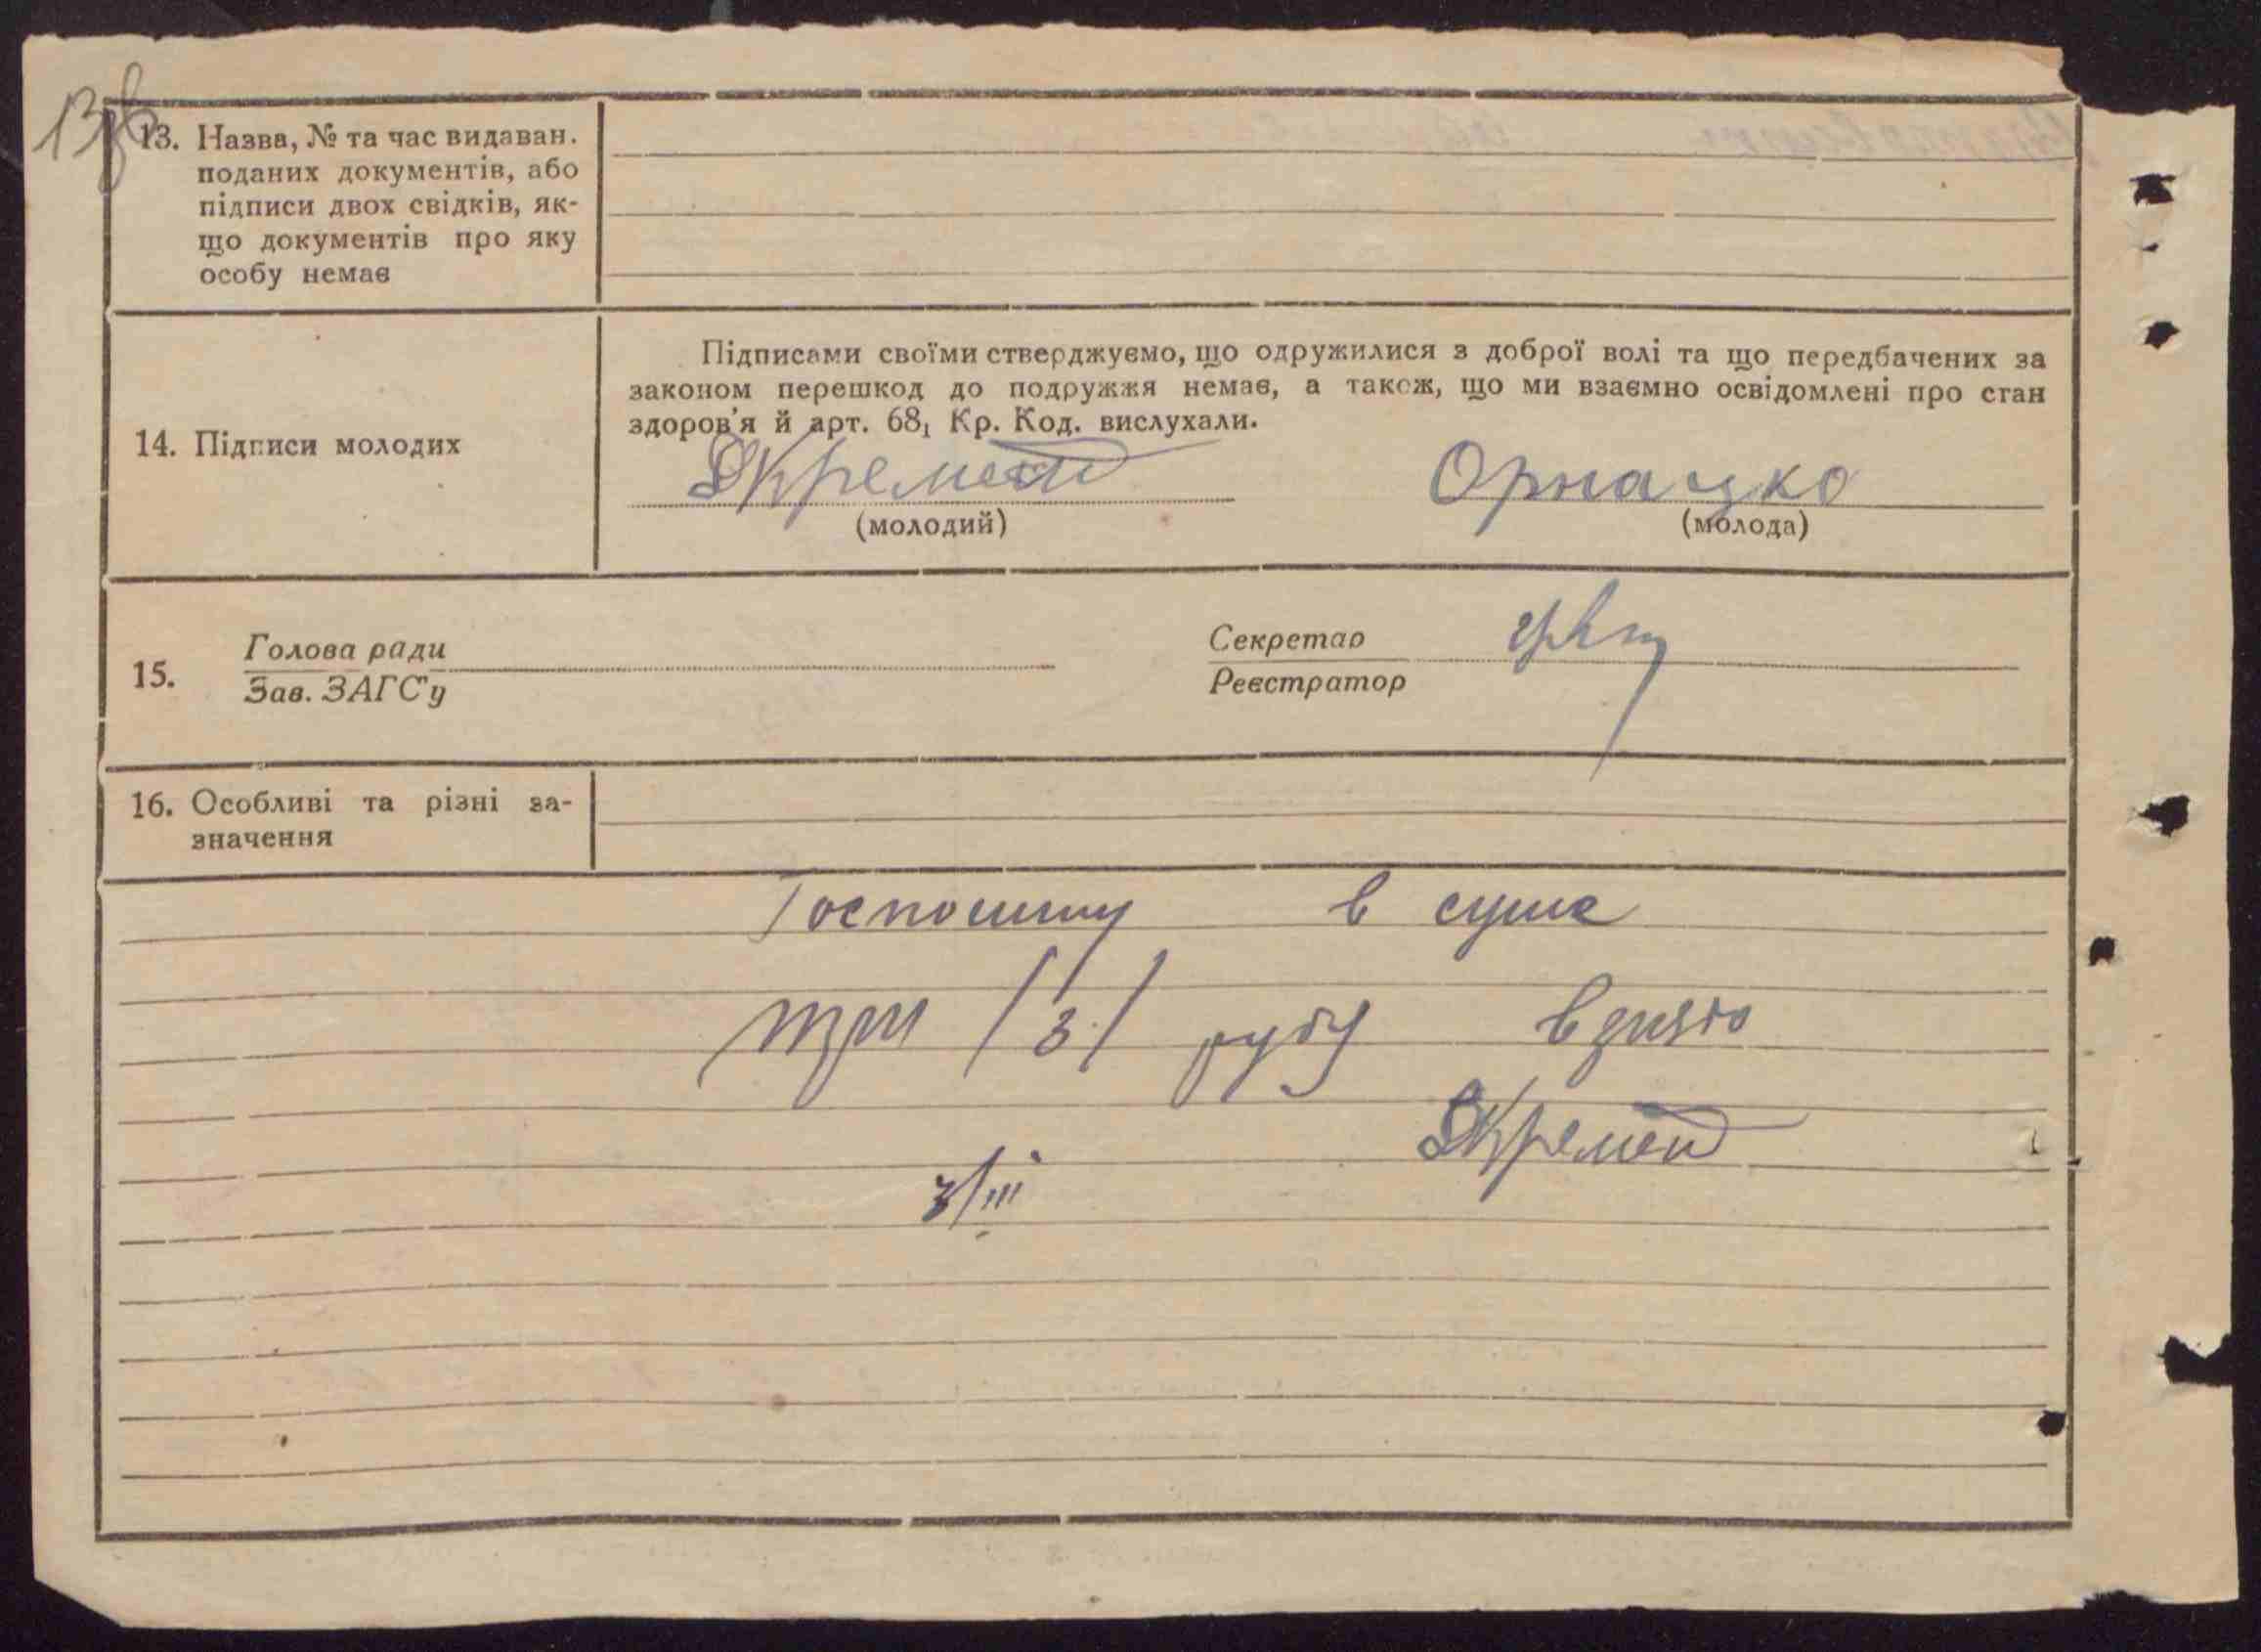 13зв
13. Назва, № та час видаван.
поданих документів, або
підписи двох свідків, як-
що документів про яку
особу немає
Підписами своїми стверджуємо, що одружилися з доброї волі та що передбачених за
законом перешкод до подружжя немає, а також, що ми взаємно освідомлені про стан
здоров'я й арт. 68₁ Кр. Код. вислухали.
14. Підписи молодих
Кремен Орнацко
(молодий) (молода)
15. Голова ради
Зав. ЗАГС'у
Секретар
Реєстратор
16. Особливі та різні за-
значення
Госпошину в суме
три /3/ руб взято
Кремен
3/III